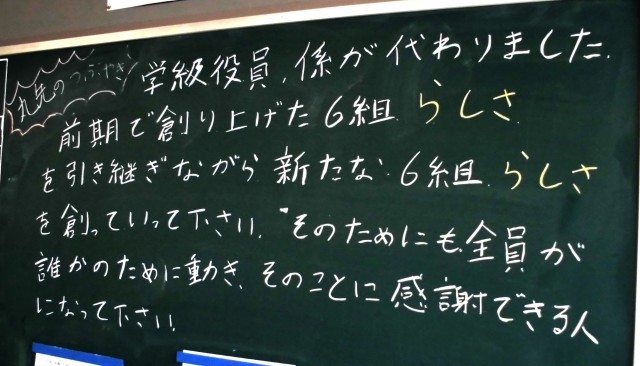 丸先のつぶやき!
学級役員、係が代わりました。
前期で創り上げた6組らしさ
を引き継ぎながら新たな6組らしさ
を創っていって下さい。そのためにも全員が
誰かのために動き、そのことに感謝できる人
になって下さい。